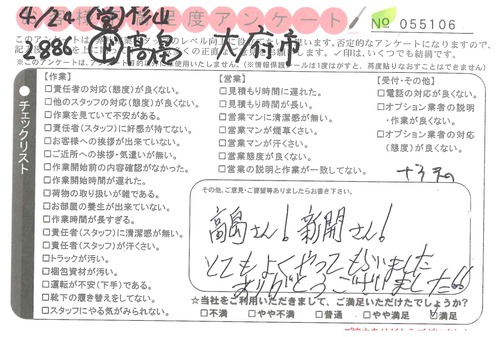 4/24 (営)杉山
足度アンケート
No 055106
3886 高畠 大府市
チェックリスト
【作業】
□責任者の対応(態度)が良くない。
□他のスタッフの対応(態度)が良くない。
□作業を見ていて不安がある。
□責任者(スタッフ)に好感が持てない。
□お客様への挨拶が出来ていない。
□ご近所への挨拶・気遣いが無い。
□作業開始前の内容確認がなかった。
□作業開始時間が遅れた。
□荷物の取り扱いが雑である。
□お部屋の養生が出来ていない。
□作業時間が長すぎる。
□責任者(スタッフ)に清潔感が無い。
□責任者(スタッフ)が汗くさい。
□トラックが汚い。
□梱包資材が汚い。
□運転が不安(下手)である。
□靴下の履き替えをしてない。
□スタッフにやる気がみられない。
【営業】
□見積もり時間に遅れた。
□見積もり時間が長い。
□営業マンに清潔感が無い。
□営業マンが煙草くさい。
□営業マンが汗くさい。
□営業態度が良くない。
□営業の説明と作業が一致してない。
【受付・その他】
□電話の対応が良くない。
□オプション業者の説明
・作業が良くない。
□オプション業者の対応
(態度)が良くない。
その他、ご意見・ご要望等ありましたらお書き下さい。
高畠さん!新開さん!
とてもよくやってもらいました
ありがとうございました
☆当社をご利用いただきまして、ご満足いただけたでしょうか?
□不満 □やや不満 □普通 □やや満足 ☑満足